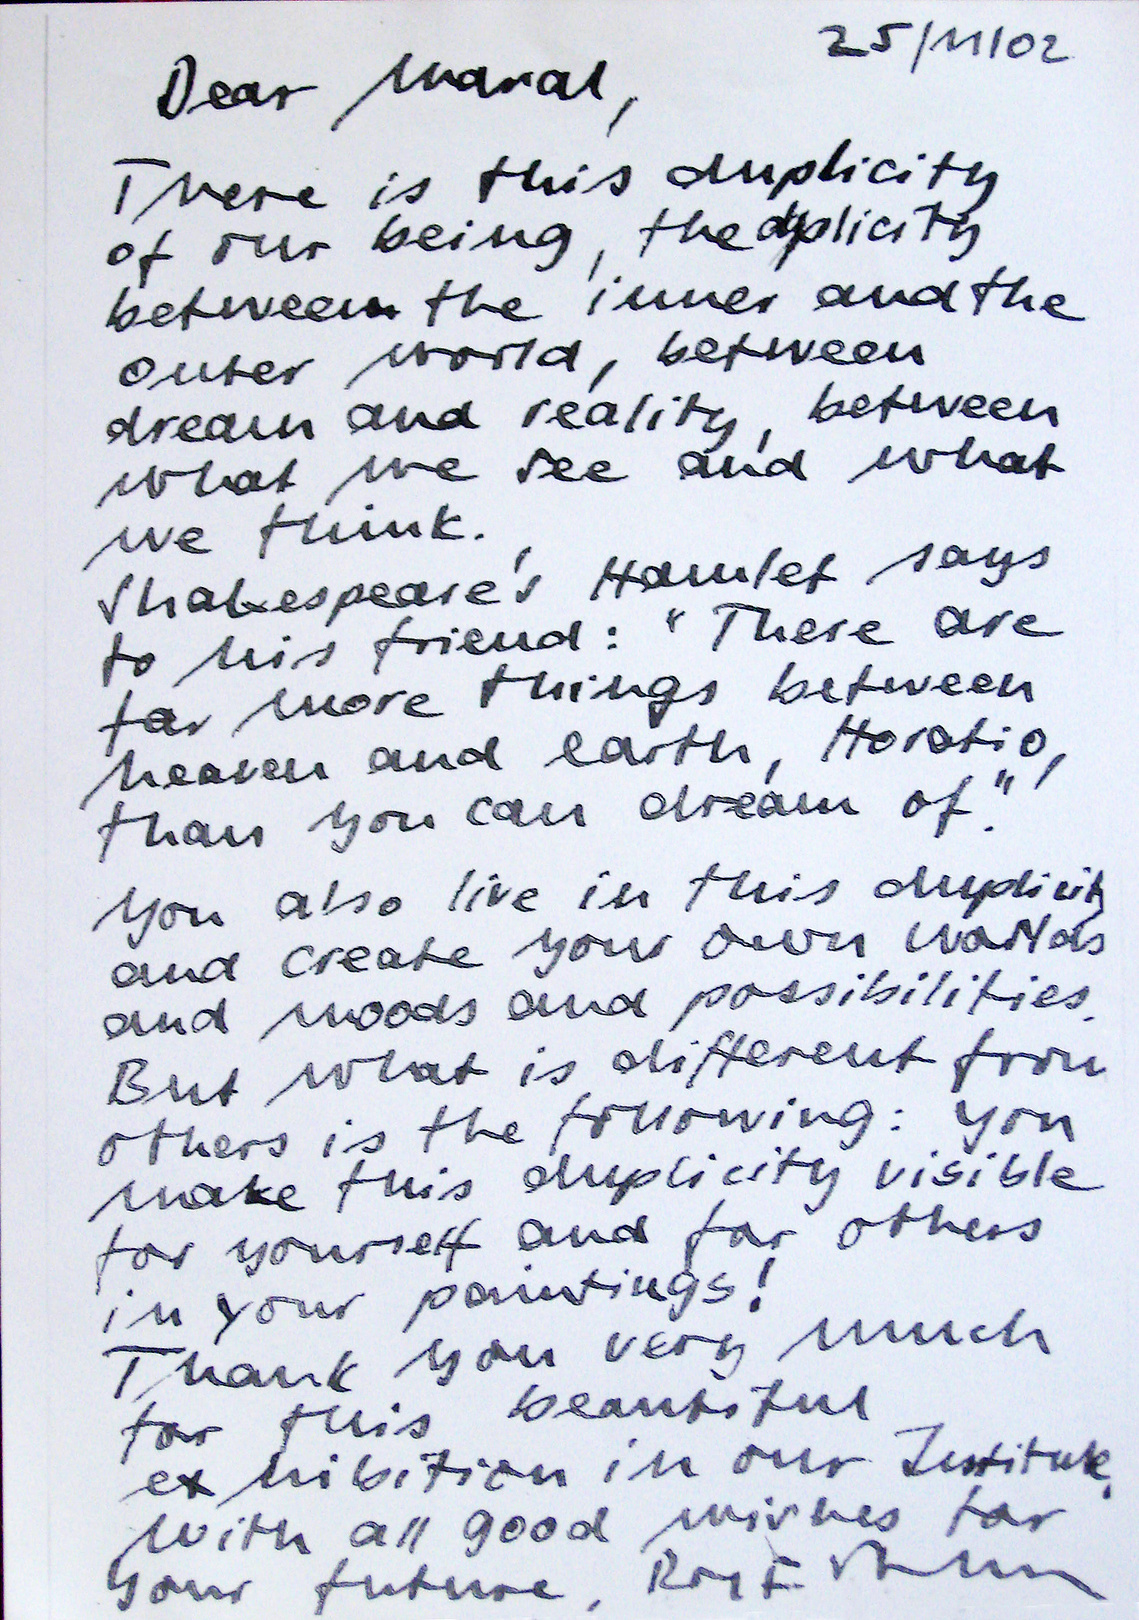 25/11/02
Dear Maral,
There is this duplicity
of our being, the duplicity
between the inner and the
outer world, between
dream and reality, between
what we see and what
we think.
Shakespeare's Hamlet says
to his friend: "There are
far more things between
heaven and earth, Horatio,
than you can dream of".
You also live in this duplicity
and create your own worlds
and moods and possibilities.
But what is different from
others is the following: you
make this duplicity visible
for yourself and for others
in your paintings!
Thank you very much
for this beautiful
exhibition in our Institute.
With all good wishes for
your future,